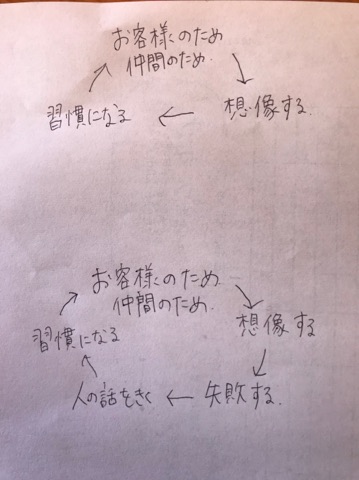 お客様のため
仲間のため.
習慣になる ← 想像する.
お客様のため
仲間のため.
習慣になる
想像する
人の話をきく ← 失敗する.